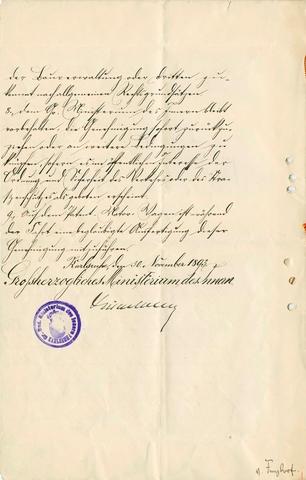 der Bauverwaltung oder dritten zu-
kommt nach allgemeinen Rechtsgrundsätzen
8, dem Gr. Ministerium des Innern bleibt
vorbehalten, die Genehmigung sofort zurückzu-
ziehen oder an weitere Bedingungen zu
knüpfen, sofern es im öffentliche Interesse der
Ordnung & Sicherheit des Verkehrs oder des Stra-
ßenschutzes als geboten erscheint.
9, Auf dem Patent-Motor-Wagen ist während
der Fahrt eine beglaubigte Ausfertigung dieser
Genehmigung mitzuführen.
Karlsruhe, den 30. November 1893
Großherzogliches Ministerium des Innern
Gr. Bad. Ministerium des Innern
KARLSRUHE